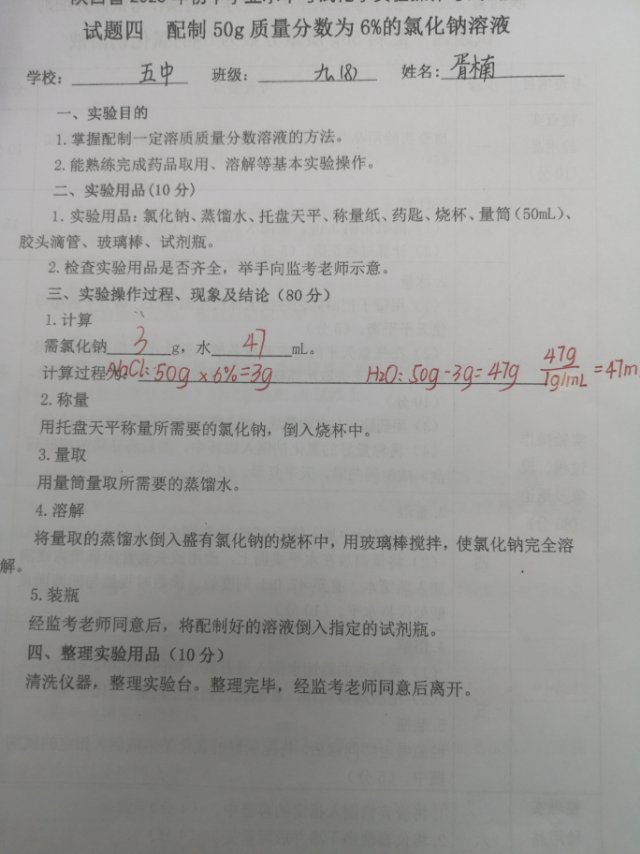 试题四 配制50g质量分数为6%的氯化钠溶液
学校: 五中 班级: 九(8) 姓名: 胥楠
一、实验目的
1.掌握配制一定溶质质量分数溶液的方法。
2.能熟练完成药品取用、溶解等基本实验操作。
二、实验用品(10分)
1.实验用品:氯化钠、蒸馏水、托盘天平、称量纸、药匙、烧杯、量筒(50mL)、
胶头滴管、玻璃棒、试剂瓶。
2.检查实验用品是否齐全,举手向监考老师示意。
三、实验操作过程、现象及结论(80分)
1.计算
需氯化钠 3 g,水 47 mL。
计算过程为: NaCl: 50g × 6% = 3g H2O: 50g - 3g = 47g 47g/1g/mL = 47m
2.称量
用托盘天平称量所需要的氯化钠,倒入烧杯中。
3.量取
用量筒量取所需要的蒸馏水。
4.溶解
将量取的蒸馏水倒入盛有氯化钠的烧杯中,用玻璃棒搅拌,使氯化钠完全溶
解。
5.装瓶
经监考老师同意后,将配制好的溶液倒入指定的试剂瓶。
四、整理实验用品(10分)
清洗仪器,整理实验台。整理完毕,经监考老师同意后离开。